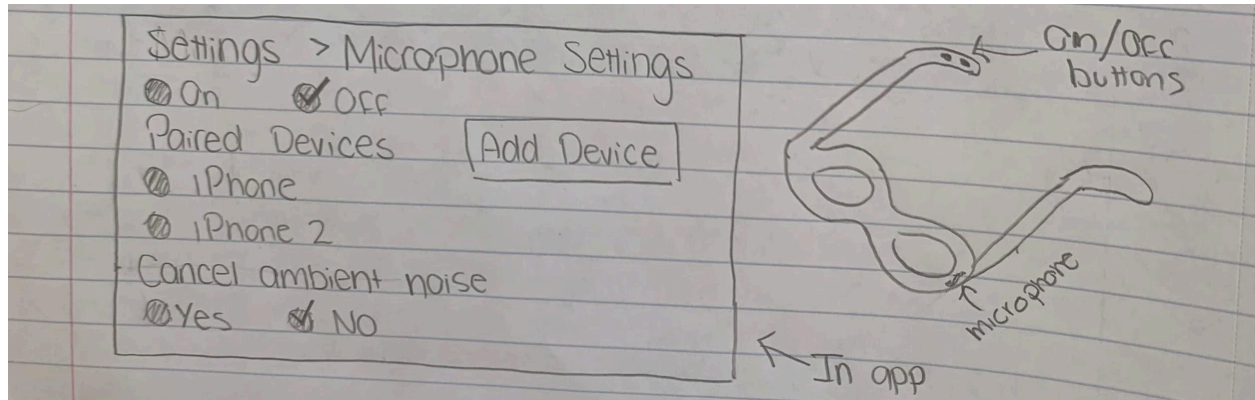 Settings > Microphone Settings
On Off
Paired Devices Add Device
iPhone
iPhone 2
Cancel ambient noise
Yes NO
In app
On/Off
buttons
microphone